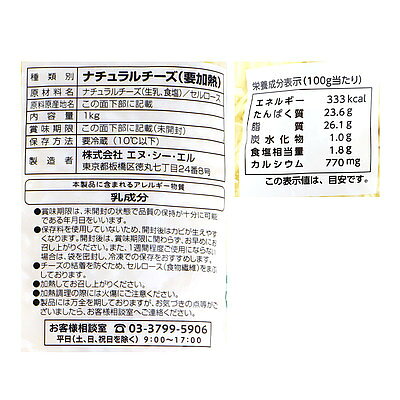 種類別 ナチュラルチーズ(要加熱)
原材料名 ナチュラルチーズ(生乳、食塩)/セルロース
原料原産地名 この面下部に記載
内容量 1kg
賞味期限 この面下部に記載(未開封)
保存方法 要冷蔵(10℃以下)
製造者 株式会社 エヌ・シー・エル
東京都板橋区徳丸七丁目24番8号
本製品に含まれるアレルギー物質
乳成分
●賞味期限は、未開封の状態で品質の保持が十分に可能
である年月日をいいます。
●保存料を使用していないため、開封後はカビが生えやす
くなります。開封後は、賞味期限に関わらず、お早めにお
召し上がりください。また、1週間程度ご使用にならない
場合は、袋を密封し、冷凍での保存をおすすめします。
●チーズの結着を防ぐため、セルロース(食物繊維)をまぶ
してあります。
●加熱してお召し上がりください。
●加熱調理の際には火傷にご注意ください。
●製品には万全を期しておりますが、お気づきの点等がご
ざいましたら、お客様相談室へご連絡ください。
お客様相談室 ☎03-3799-5906
平日(土、日、祝日を除く) 9:00〜17:00
栄養成分表示(100g当たり)
エネルギー 333kcal
たんぱく質 23.6g
脂質 26.1g
炭水化物 1.0g
食塩相当量 1.8g
カルシウム 770mg
この表示値は、目安です。